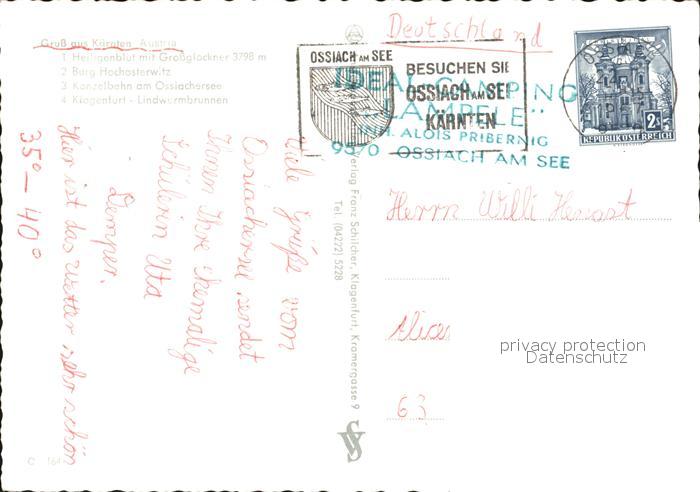 Gruß aus Kärnten, Austria
1 Heiligenblut mit Großglockner 3798 m
2 Burg Hochosterwitz
3 Kanzelbahn am Ossiachersee
4 Klagenfurt - Lindwurmbrunnen
Viele Grüße vom
Ossiachersee sendet
Ihnen Ihre ehemalige
Schülerin Uta
Hier ist das Wetter sehr schön
35° - 40°
C 164
Verlag Franz Schilcher, Klagenfurt, Kramergasse 9
Tel. (04272) 5228
Deutschland
OSSIACH AM SEE
BESUCHEN SIE
OSSIACH AM SEE
KÄRNTEN
IDEAL CAMPING
"LAMPELE"
INH. ALOIS PRIBERNIG
9570 OSSIACH AM SEE
2S
REPUBLIK ÖSTERREICH
Herrn Willi
63
privacy protection
Datenschutz